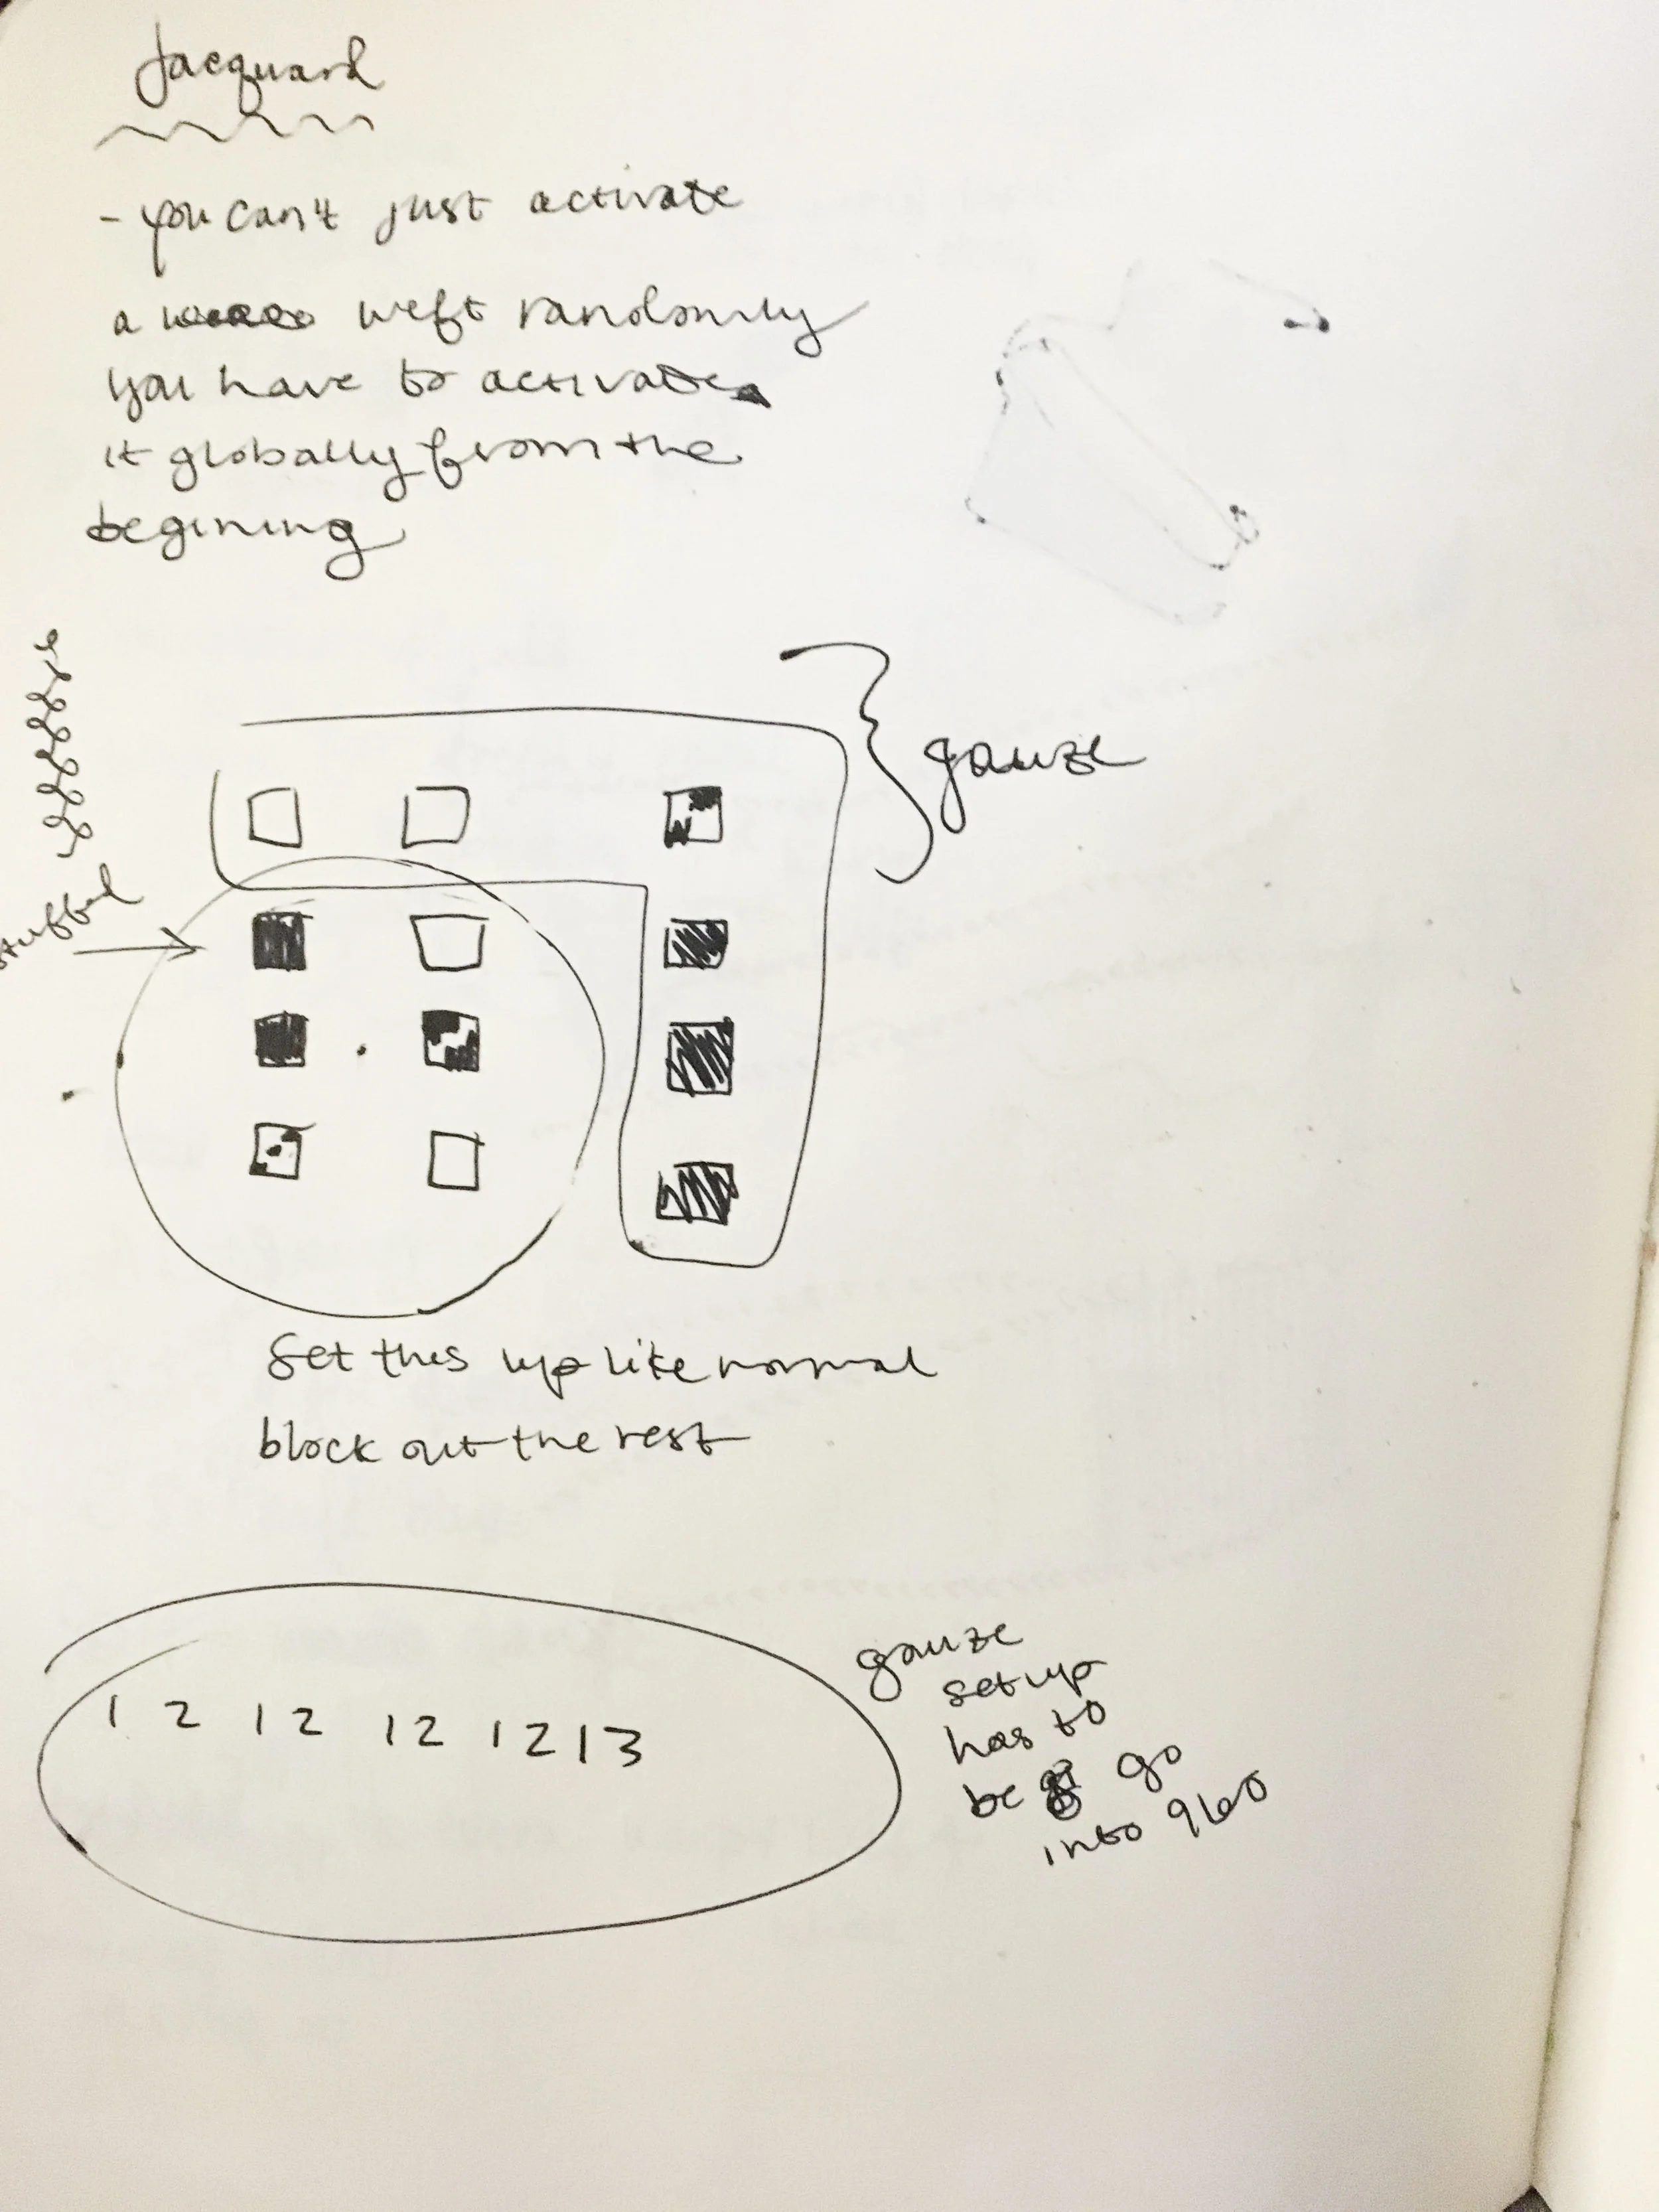 Jacquard
- you can't just activate
a weft randomly
you have to activate
it globally from the
begining
gauze
stuffed
Set this up like normal
block out the rest
1 2 1 2 1 2 1 2 1 3
gauze
setup
has to
be go
into 960